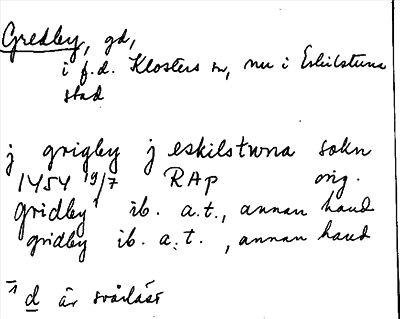 Gredby, gd,
i f.d. Klosters sn, nu i Eskilstuna
stad
j grigby j eskilstwna sokn
1454 19/7 RAp orig.
gridby¹ ib. a.t., annan hand
gridby ib. a.t., annan hand
¹ d är svårläst